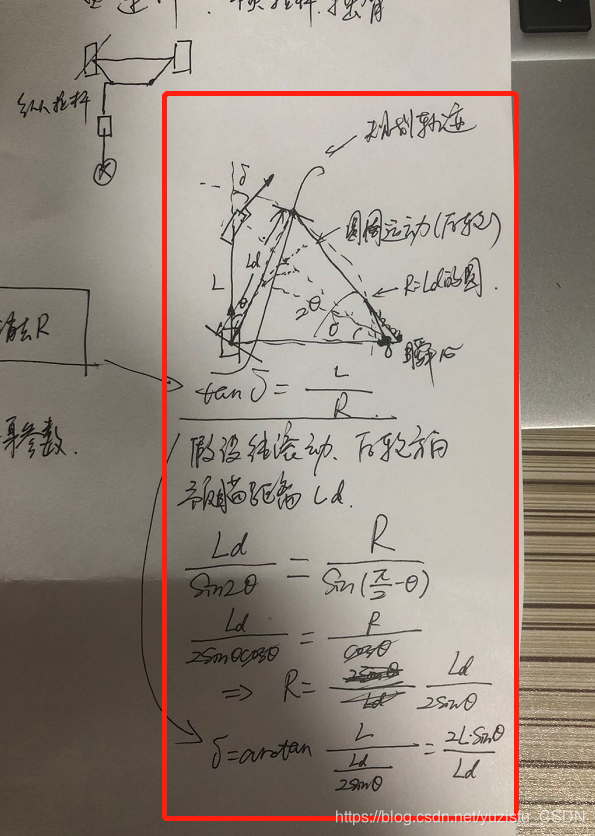 纵拉杆
规划轨迹
δ
圆周运动(后轮)
Ld
L
R=Ld的圆.
θ
2θ
消去R
瞬心
tan δ = L / R
算参数.
假设纯滚动、后轮方向
预瞄距离 Ld.
Ld / Sin2θ = R / Sin(π/2 -θ)
Ld / 2SinθCosθ = R / Cosθ
⇒ R = Ld / 2Sinθ
δ=arctan L / (Ld / 2Sinθ) = 2L·Sinθ / Ld
https://blog.csdn.net/yuzisu_CSDN